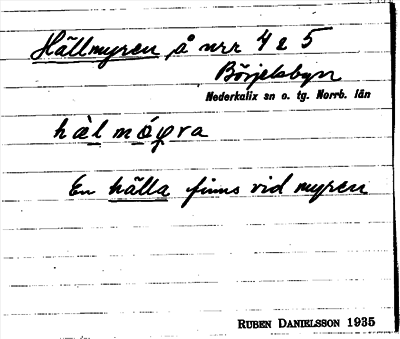 Hällmyren, å nrr 4 e 5
Börjelsbyn
Nederkalix sn o. tg. Norrb. län
En hälla finns vid myren
RUBEN DANIELSSON 1935